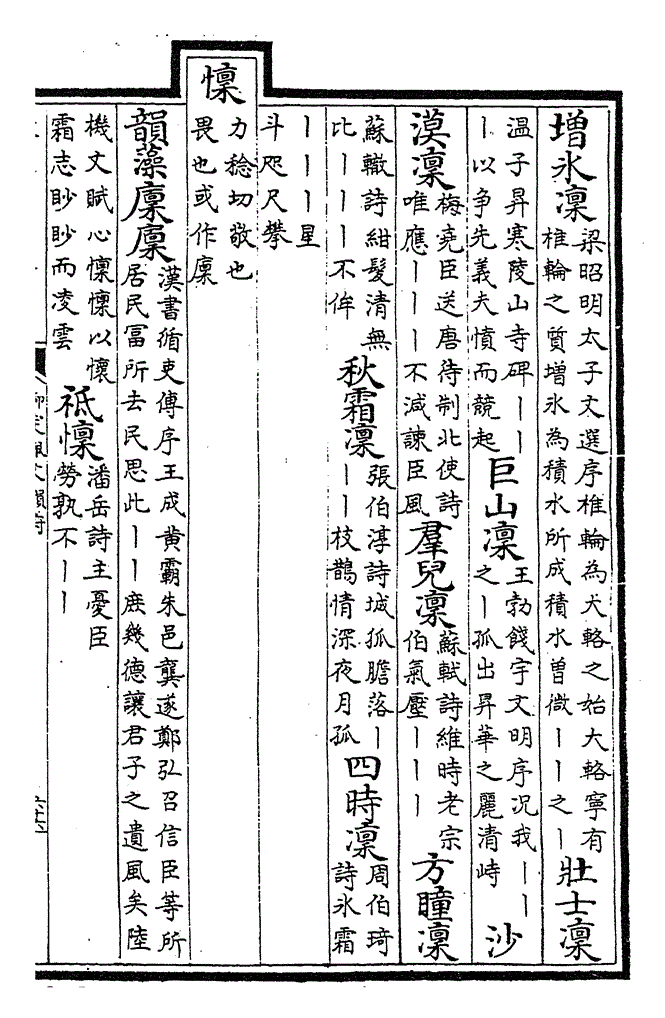 增氷凜
梁昭明太子文選序椎輪為大輅之始大輅寧有
椎輪之質增氷為積水所成積水曽微丨丨之丨
壯士凜
温子昇寒陵山寺碑丨丨
丨以争先義夫憤而競起
巨山凜
王勃餞宇文明序况我丨丨
之丨孤出昇華之麗清峙
沙
漠凜
梅堯臣送唐待制北使詩
唯應丨丨丨不減諫臣風
羣兒凜
蘇軾詩維時老宗
伯氣壓丨丨丨
方瞳凜
蘇轍詩紺髮清無
比丨丨丨不侔
秋霜凜
張伯淳詩城狐膽落丨
丨丨枝鵲情深夜月孤
四時凜
周伯琦
詩氷霜
丨丨丨星
斗咫尺攀
懍
力稔切敬也
畏也或作廩
韻藻廩廩
漢書循吏傳序王成黄霸朱邑龔遂鄭弘召信臣等所
居民冨所去民思此丨丨庶幾德讓君子之遺風矣陸
機文賦心懍懍以懷
霜志眇眇而凌雲
祗懍
潘岳詩主憂臣
勞孰不丨丨